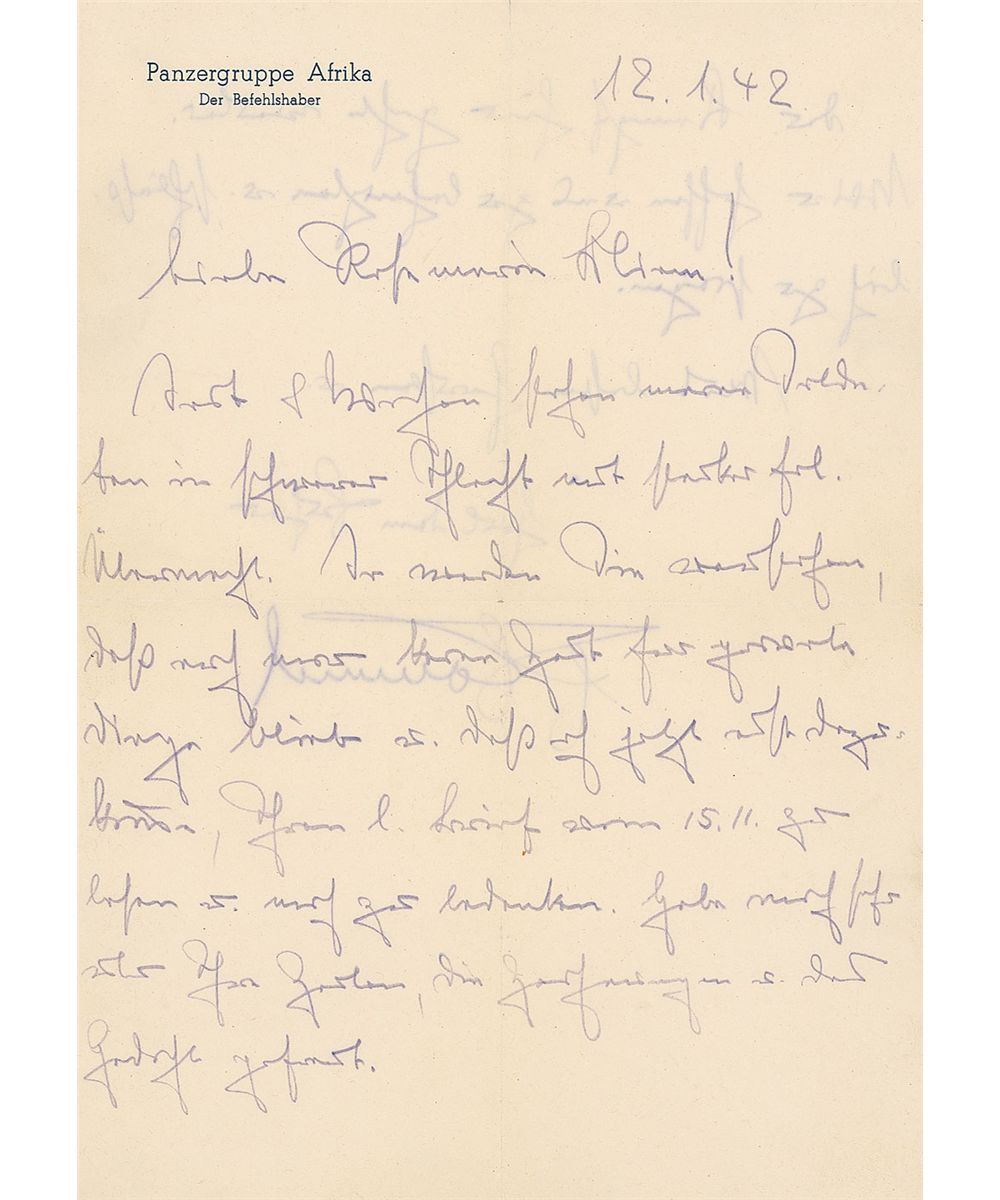 Panzergruppe Afrika
Der Befehlshaber
12. 1. 42
Liebe Rosemarie Kliem!
Seit 8 Wochen stehen meine Solda-
ten in schwerer Schlacht mit starker fdl.
Übermacht. So werden Sie verstehen,
daß mir keine Zeit für private
Dinge bleibt u. daß ich jetzt erst dazu-
komme, Ihren l. Brief vom 15.11. zu
lesen u. mich zu bedanken. Habe mich sehr
über Ihre Zeilen, die Zeichnungen u. das
Gedicht gefreut.